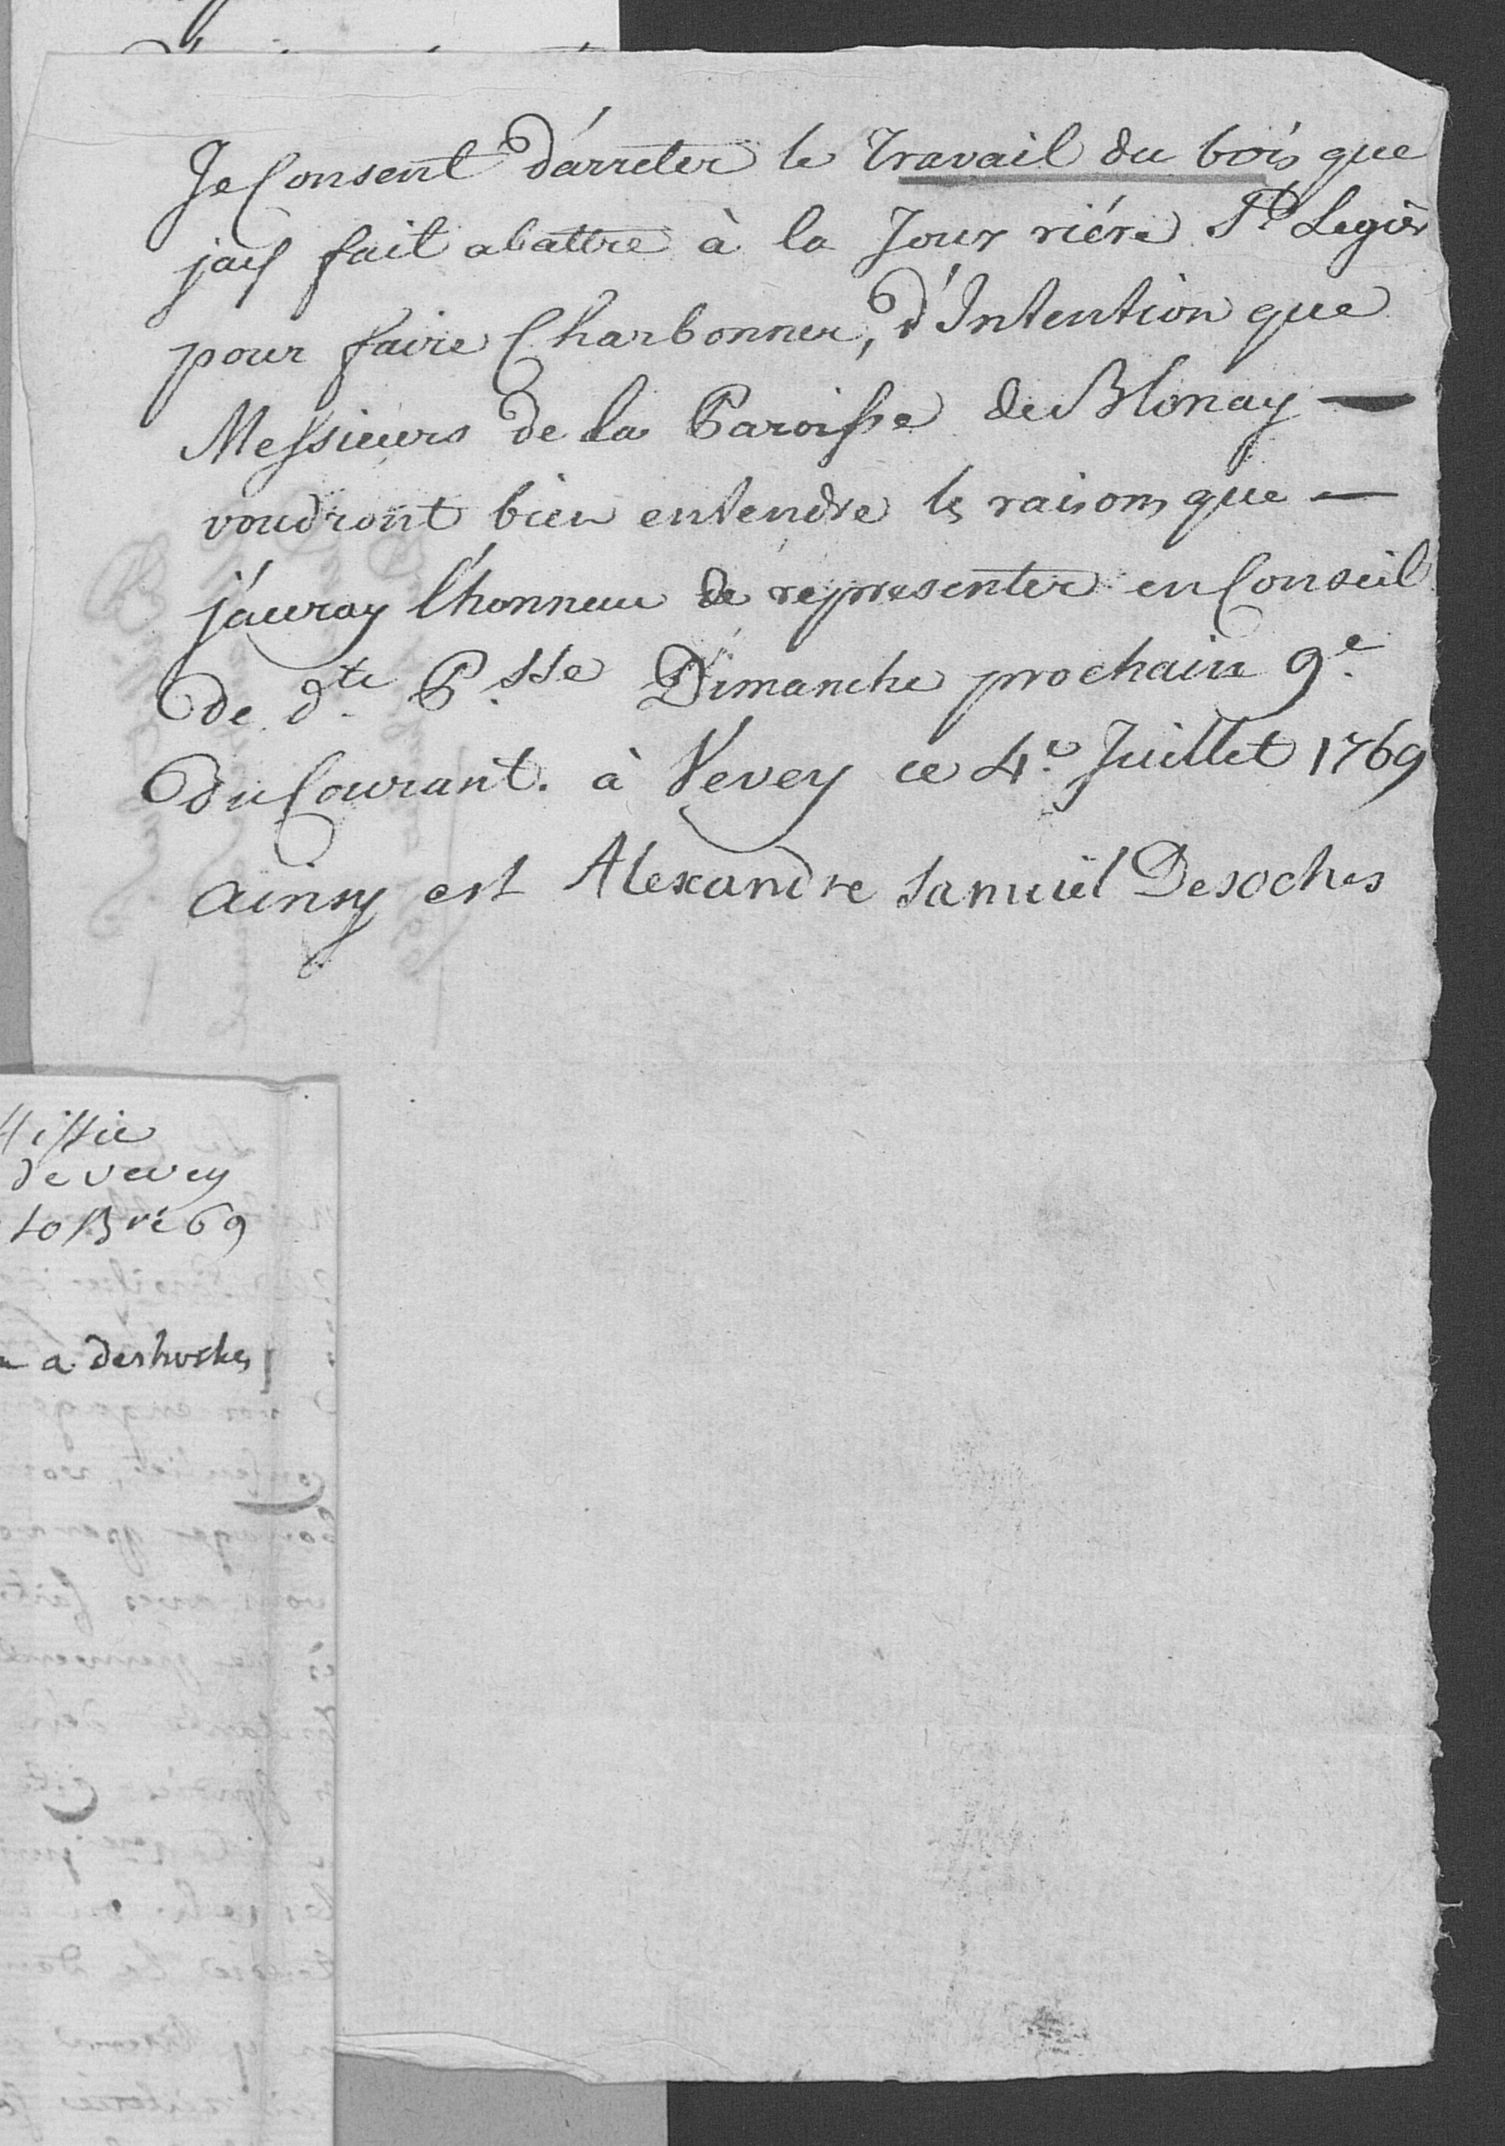 Je Consent d'arreter le Travail du bois que
jay fait abattre à la Jour riére St Legier
pour faire Charbonner, d'Intention que
Messieurs de la Paroisse de Blonay —
voudront bien entendre les raisons que —
j'auray l'honneur de representer en Conseil
de dte Psse Dimanche prochain 9e
du Courant. à Vevey ce 4e Juillet 1769
ainsy est Alexandre Samuël Desoches
de vevey
10Bre 69
a deshoches